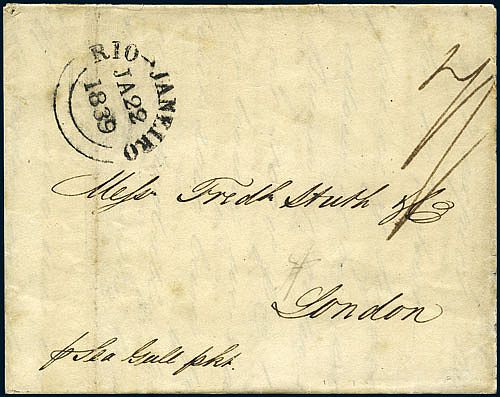 RIO-JANEIRO
JA 22
1839
Messrs Fredk Huth & Co
London
p Sea Gull pkt.